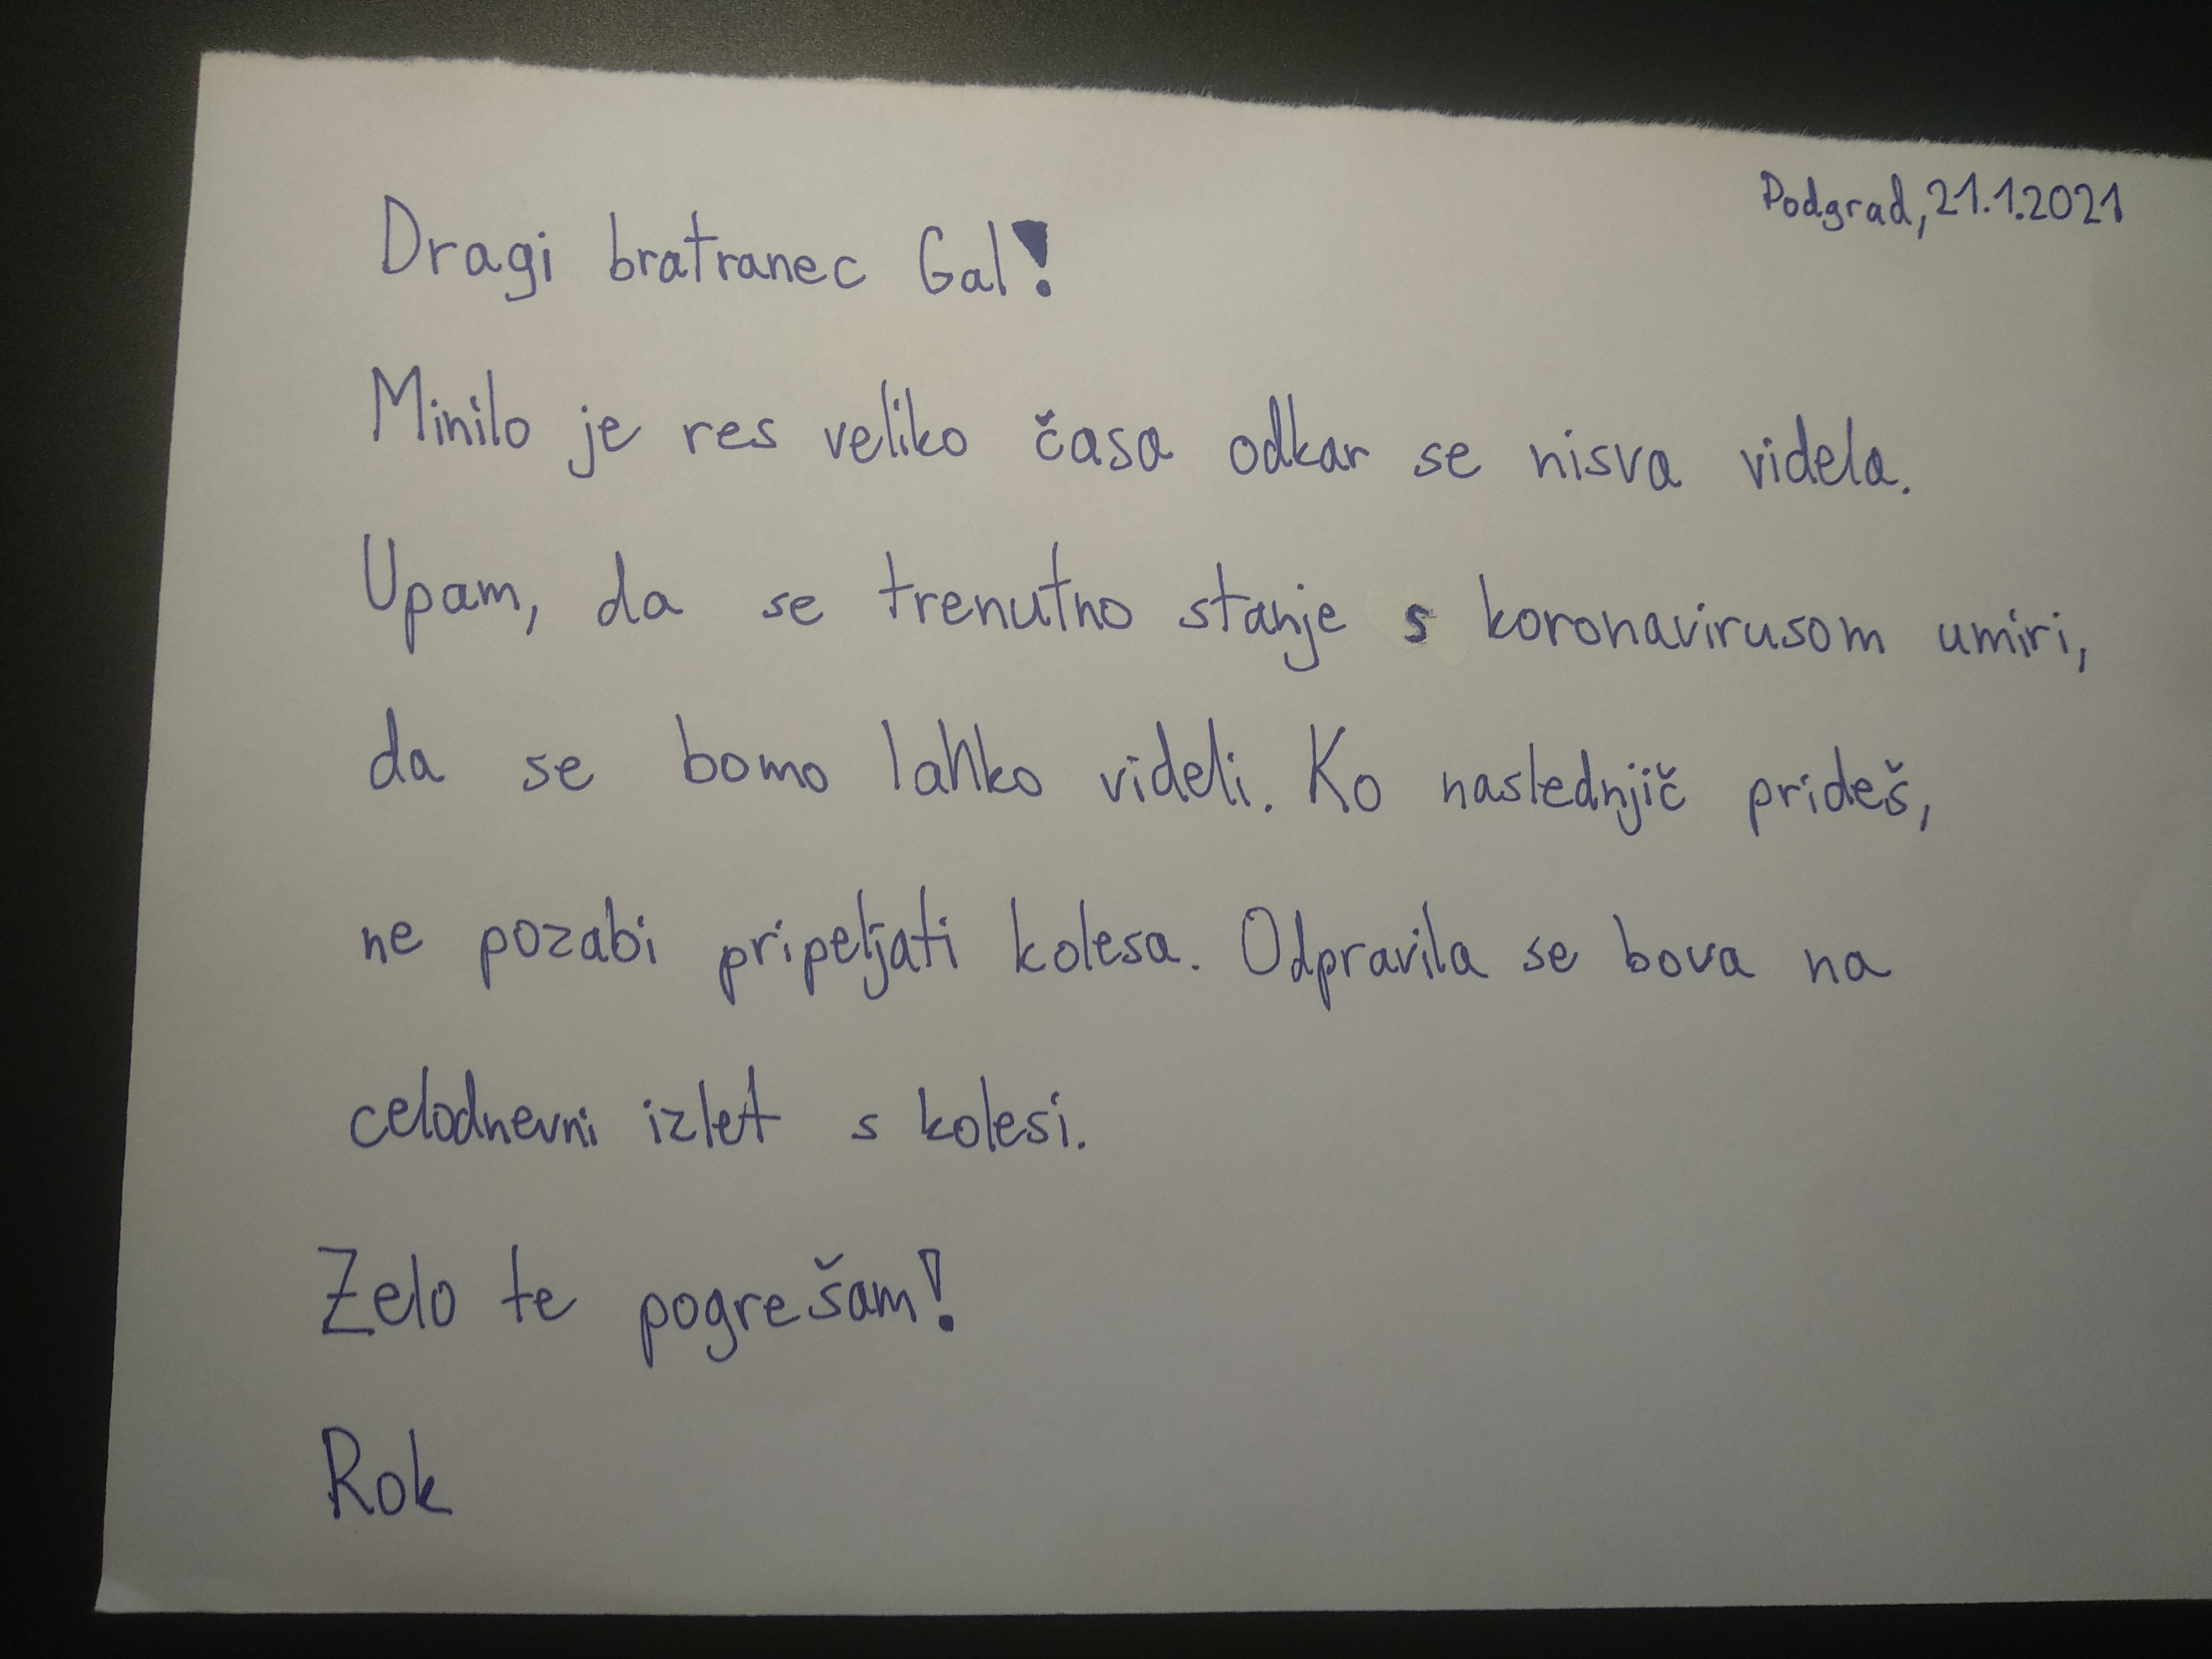 Podgrad, 21.1.2021
Dragi bratranec Gal!
Minilo je res veliko časa odkar se nisva videla.
Upam, da se trenutno stanje s koronavirusom umiri,
da se bomo lahko videli. Ko naslednjič prideš,
ne pozabi pripeljati kolesa. Odpravila se bova na
celodnevni izlet s kolesi.
Zelo te pogrešam!
Rok